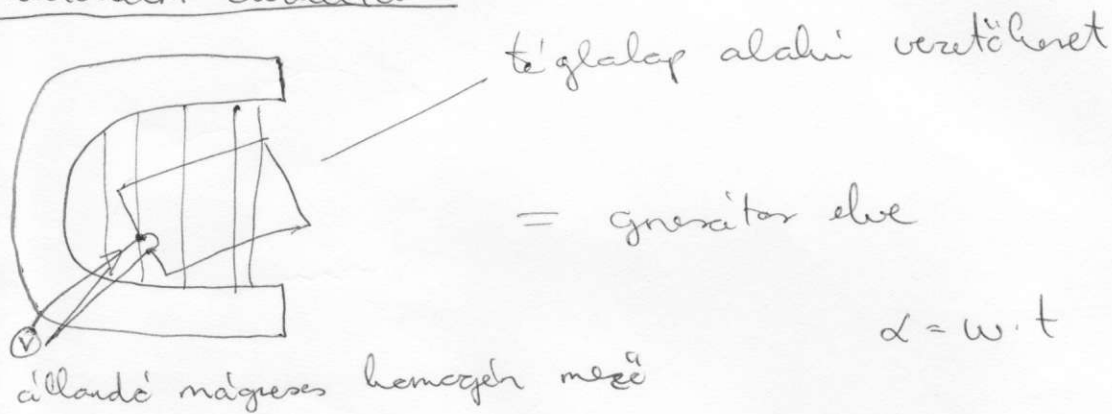 téglalap alakú vezetőkeret
= generátor elve
α = ω · t
V
állandó mágneses homogén mező